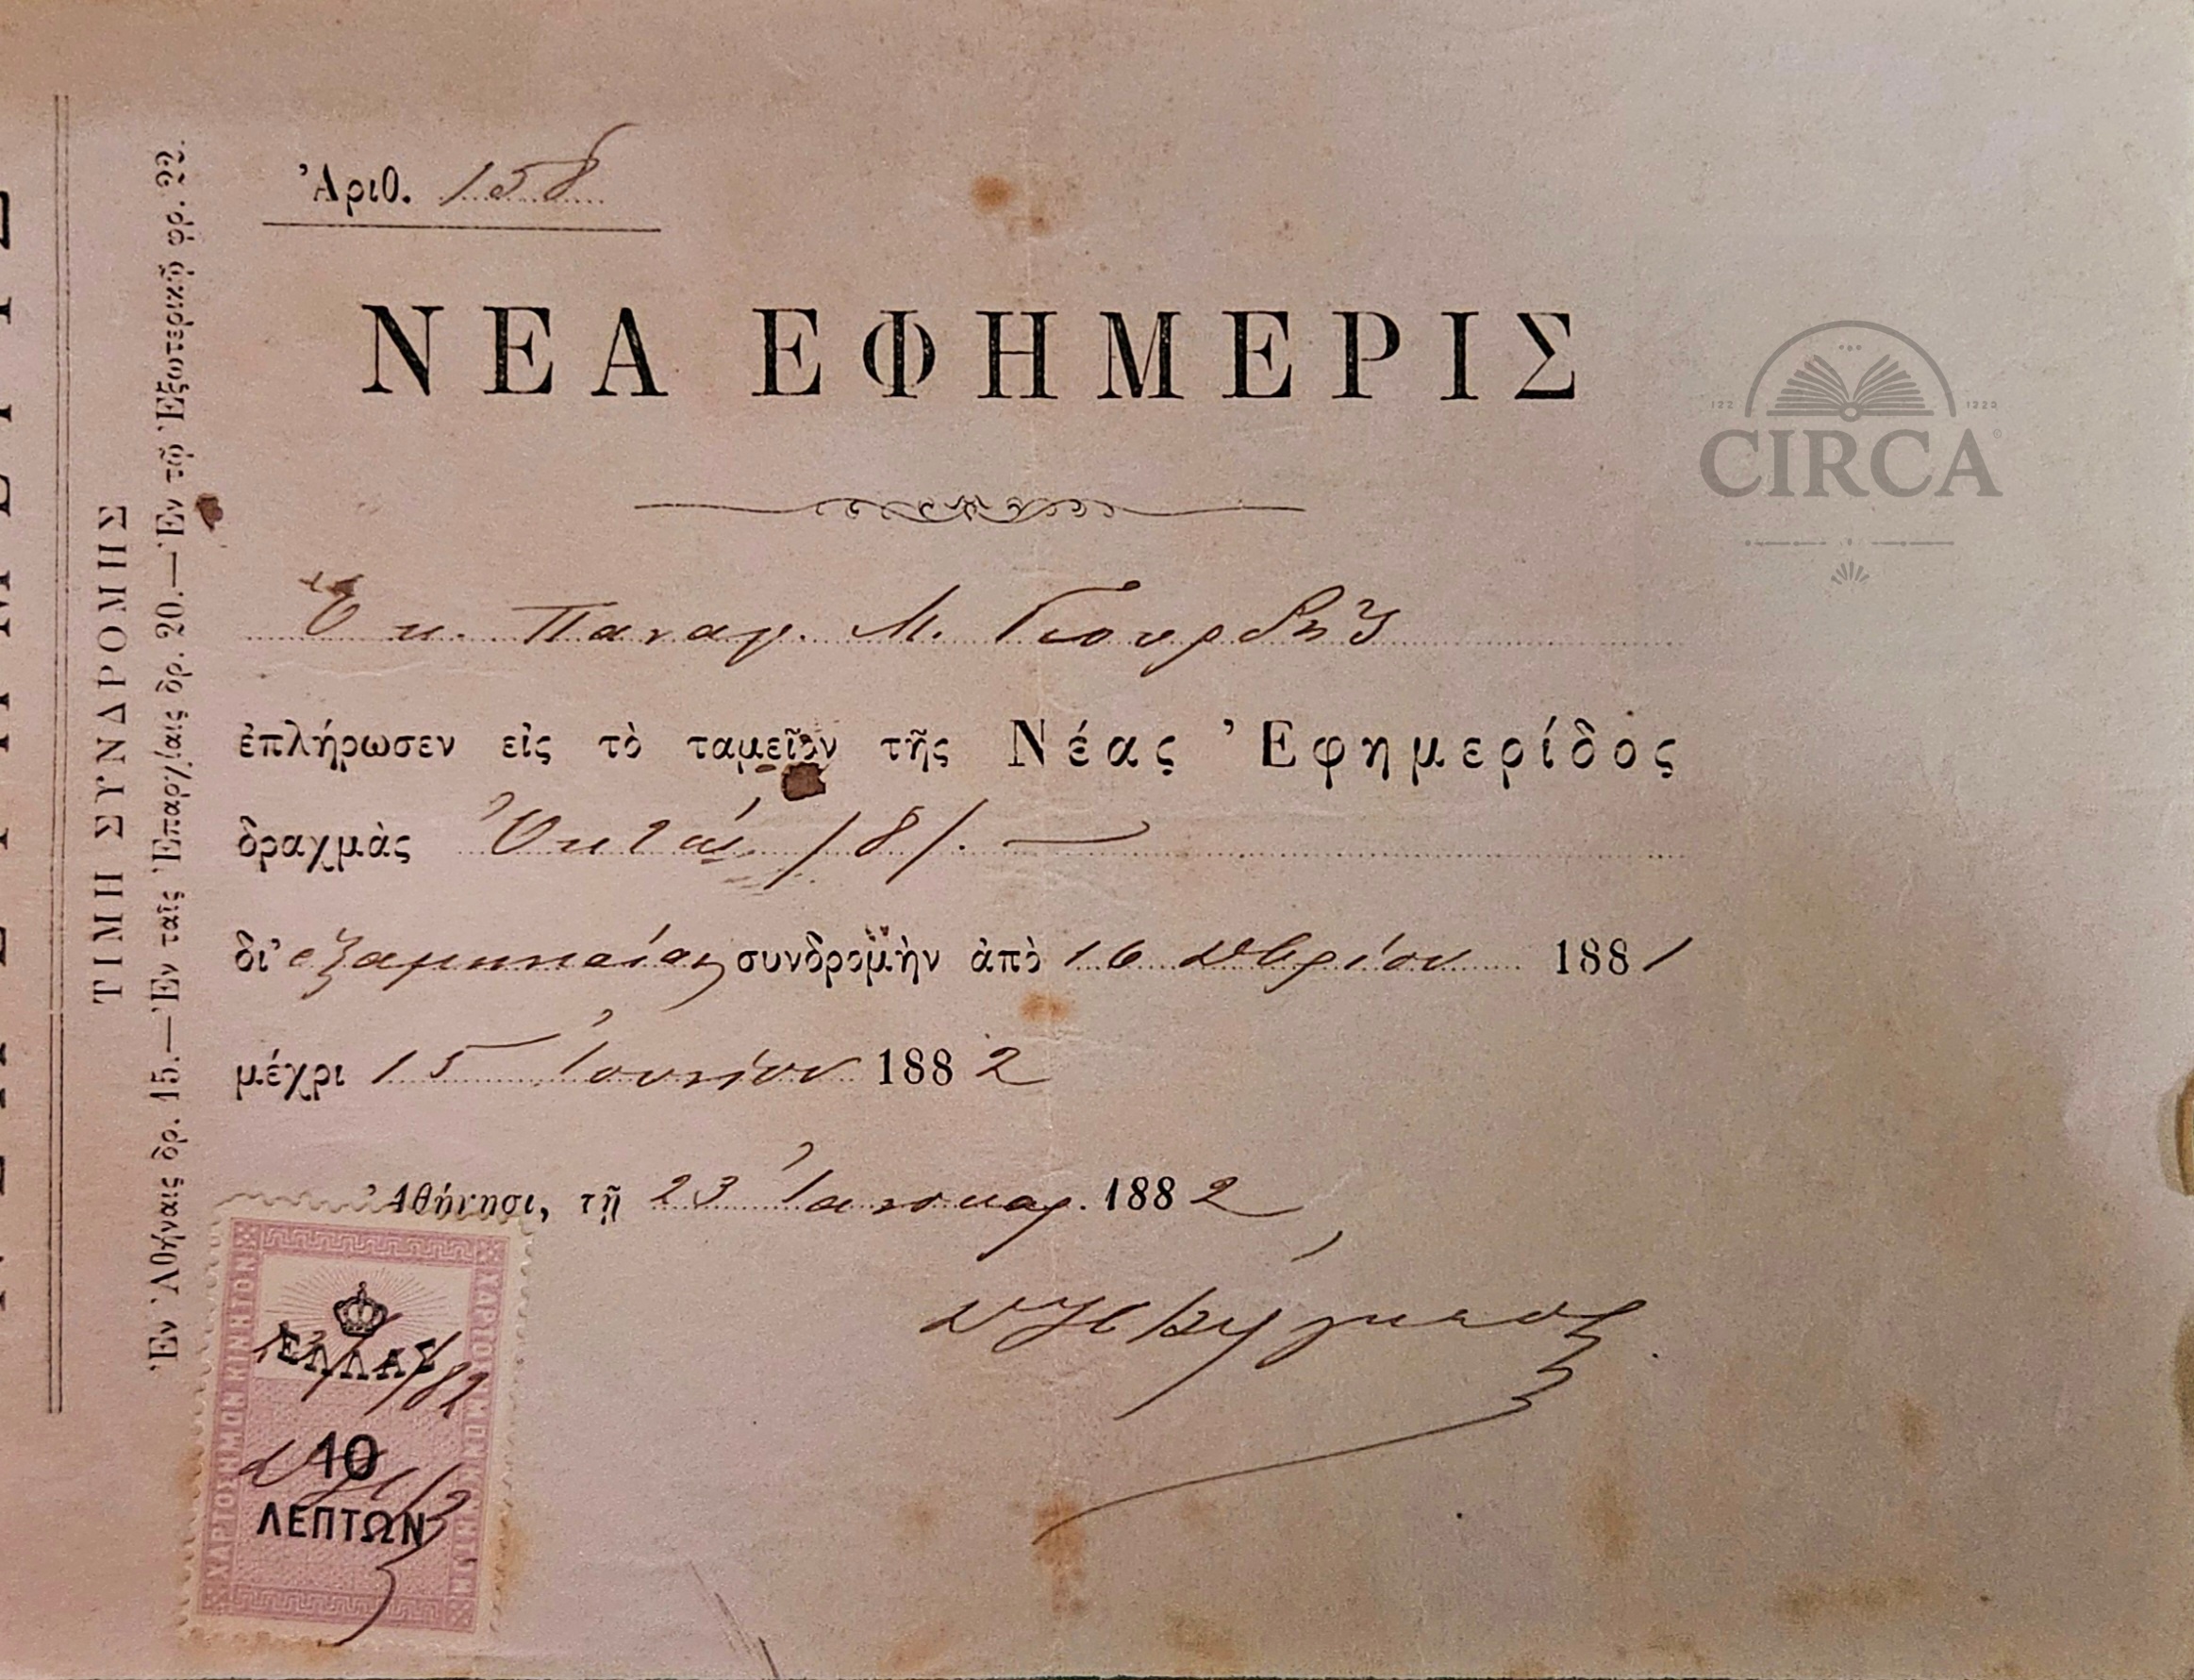 Ἀριθ. 158
ΝΕΑ ΕΦΗΜΕΡΙΣ
Ὁ κ. Παναγ. Μ. Γιουρδῆς
ἐπλήρωσεν εἰς τὸ ταμεῖον τῆς Νέας Ἐφημερίδος
δραχμὰς Ὀκτώ /8/. —
δι' ἑξαμηνιαίαν συνδρομὴν ἀπὸ 16 Δβρίου 1881
μέχρι 15 Ἰουνίου 1882
Ἀθήνησι, τῇ 23 Ἰανουαρ. 1882
ΤΙΜΗ ΣΥΝΔΡΟΜΗΣ
Ἐν Ἀθήναις δρ. 15.—Ἐν ταῖς Ἐπαρχίαις δρ. 20.—Ἐν τῷ Ἐξωτερικῷ φρ. 22.
ΧΑΡΤΟΣΗΜΟΝ ΚΙΝΗΤΟΝ
ΕΛΛΑΣ
10
ΛΕΠΤΩΝ
ΧΑΡΤΟΣΗΜΟΝ ΚΙΝΗΤΟΝ
CIRCA